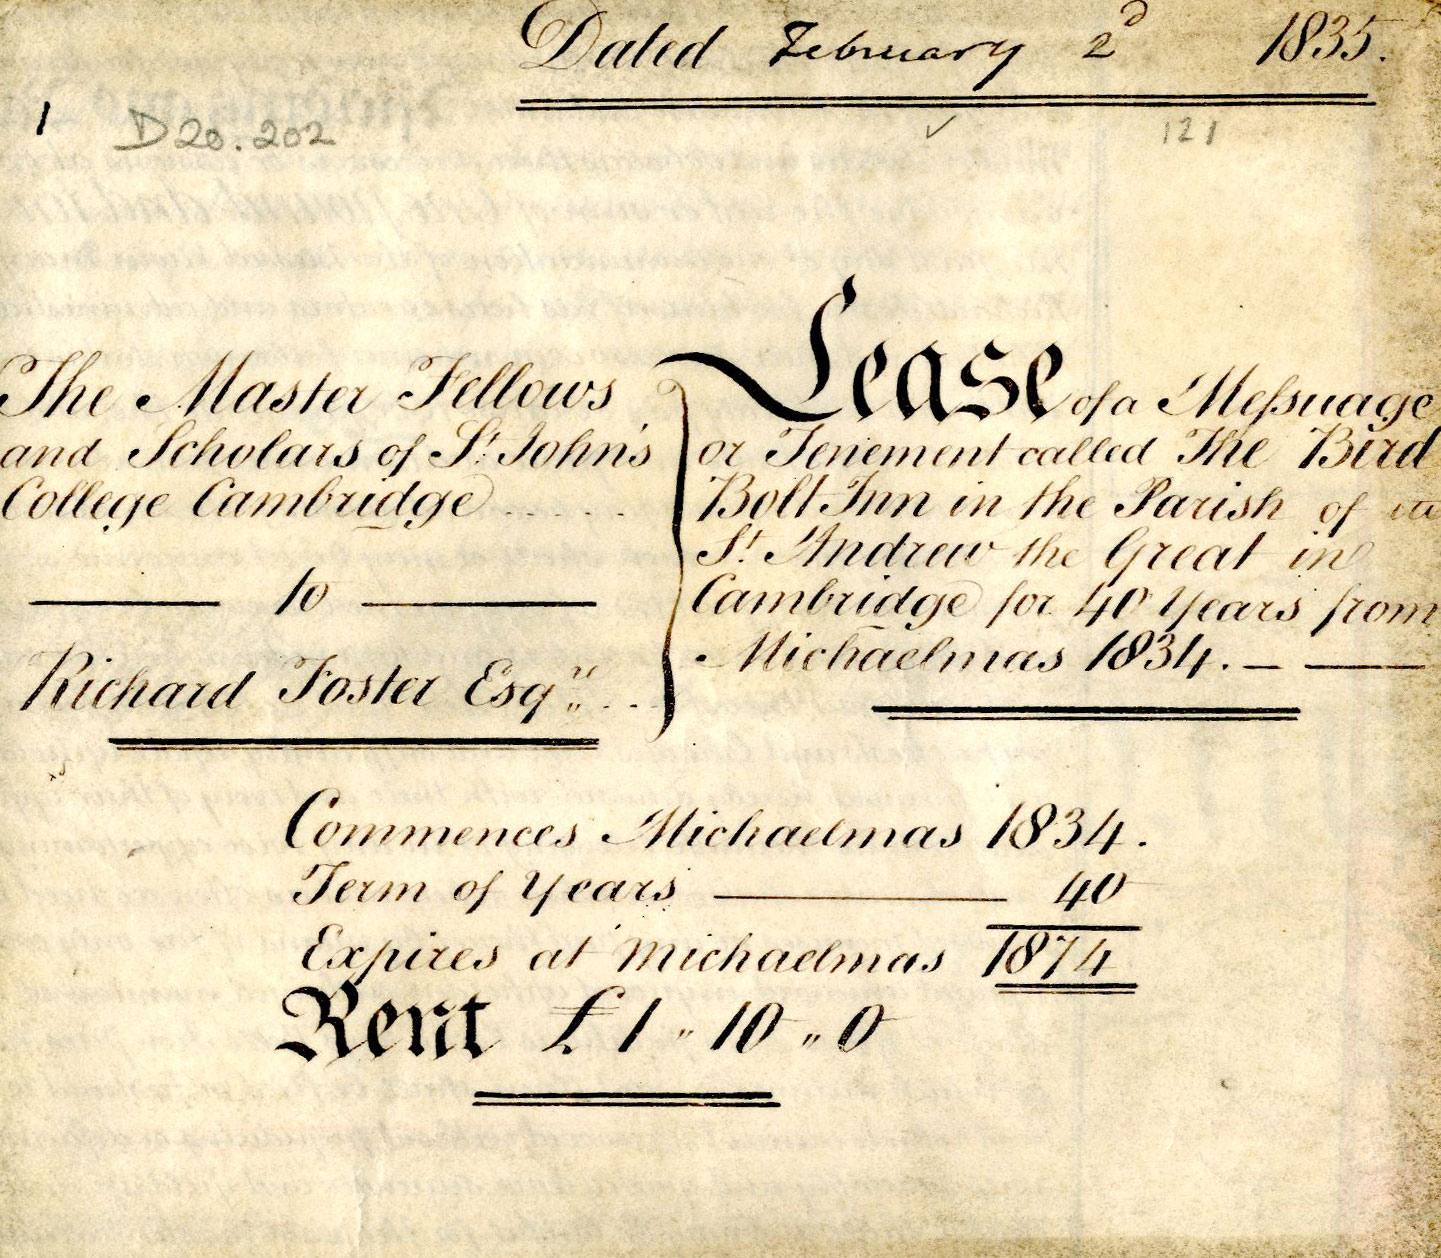 Dated February 2d 1835.
1 D20.202 121
The Master Fellows
and Scholars of St. John's
College Cambridge . . . . .
to
Richard Foster Esqre . . .
Lease of a Meſsuage
or Tenement called The Bird
Bolt Inn in the Parish of
St. Andrew the Great in
Cambridge for 40 Years from
Michaelmas 1834. — —
Commences Michaelmas 1834.
Term of Years — 40
Expires at Michaelmas 1874
Rent £1 " 10 " 0